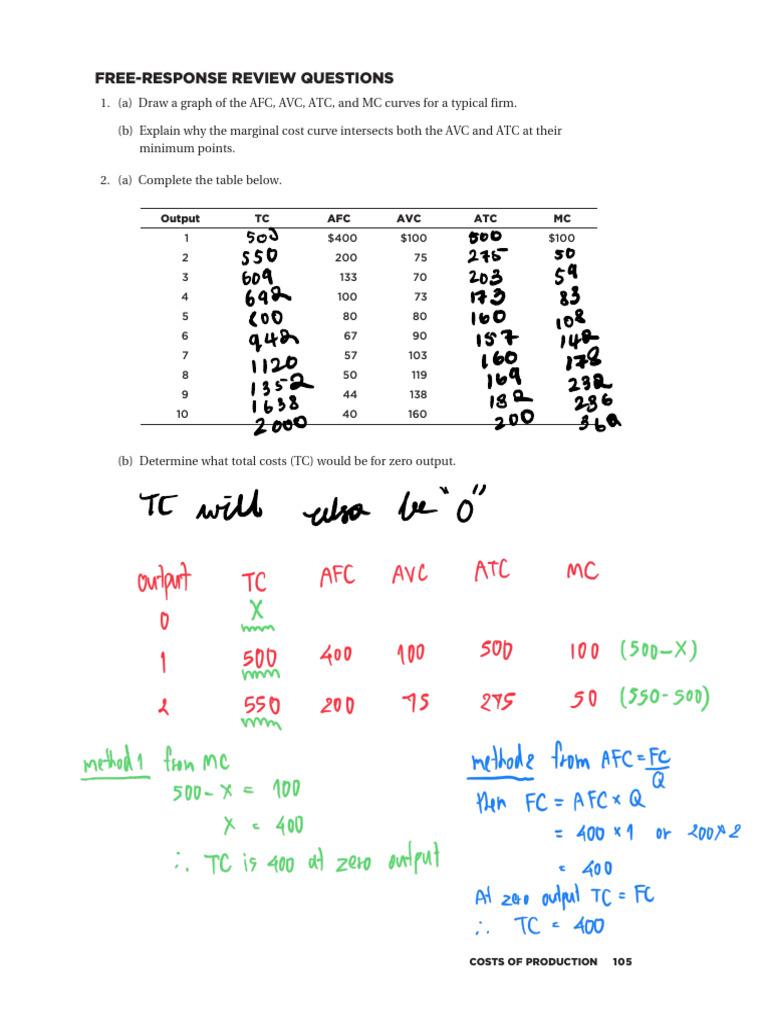 FREE-RESPONSE REVIEW QUESTIONS
1. (a) Draw a graph of the AFC, AVC, ATC, and MC curves for a typical firm.
(b) Explain why the marginal cost curve intersects both the AVC and ATC at their
minimum points.
2. (a) Complete the table below.
Output TC AFC AVC ATC MC
1 500 $400 $100 500 $100
2 550 200 75 275 50
3 609 133 70 203 59
4 692 100 73 173 83
5 800 80 80 160 108
6 942 67 90 157 142
7 1120 57 103 160 178
8 1352 50 119 169 232
9 1638 44 138 182 286
10 2000 40 160 200 362
(b) Determine what total costs (TC) would be for zero output.
TC will also be "0"
output TC AFC AVC ATC MC
0 X
1 500 400 100 500 100 (500-X)
2 550 200 75 275 50 (550-500)
method 1 from MC
500-X = 100
X = 400
∴ TC is 400 at zero output
method 2 from AFC = FC/Q
then FC = AFC × Q
= 400 × 1 or 200×2
= 400
At zero output TC = FC
∴ TC = 400
COSTS OF PRODUCTION 105